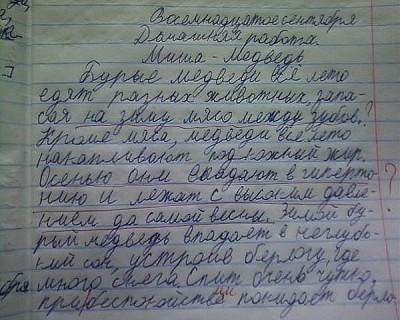 Восемнадцатое сентября
Домашняя работа.
Миша - Медведь
Бурые медведи всё лето
едят разных животных, запа-
сая на зиму мясо между зубов.?
Кроме мяса, медведи всё лето
накапливают подкожный жир.
Осенью они впадают в гиперто-
нию и лежат с высоким давле- ?
нием до самой весны. Зимой бу-
рый медведь впадает в неглубо-
кий сон, устроив берлогу, где
много снега. Спит очень чутко,
при беспокойстве покидает берло-